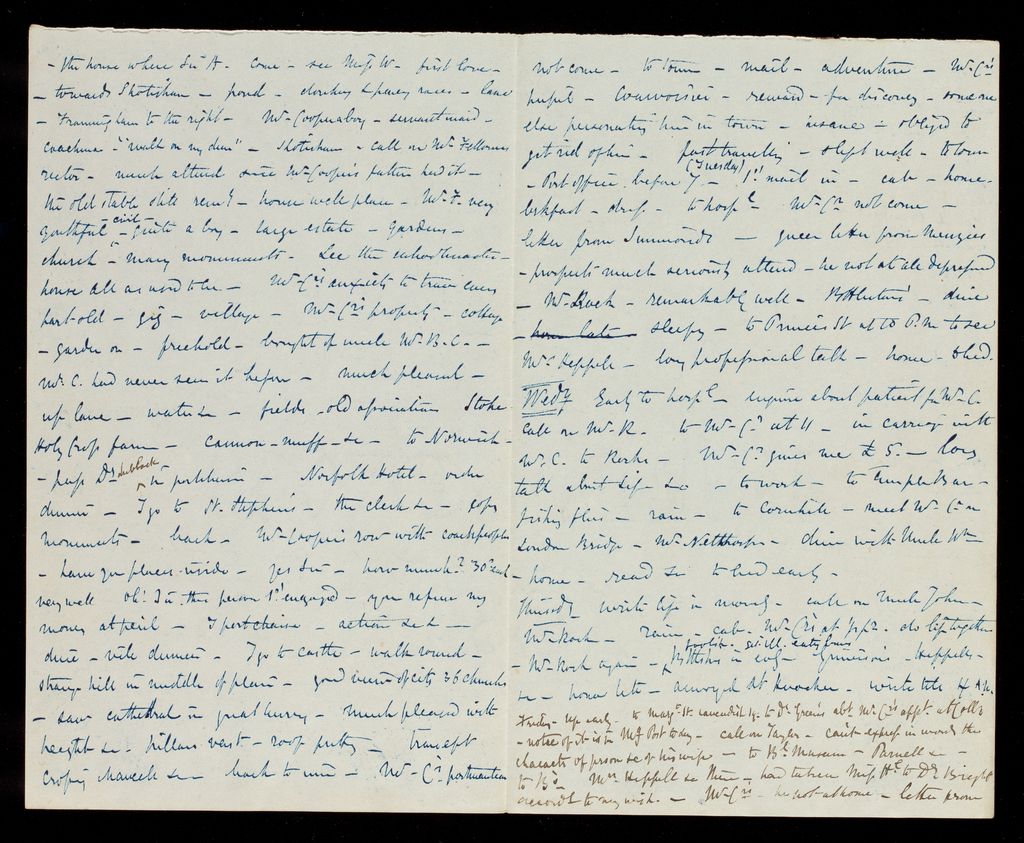 - the house where Sir A - come - see Mrs W - first love -
- towards Shotisham - pond - donkey & poney races - lane
- Framingham to the right - Mr Cooper a boy - servant maid -
coachman - "walk on my dear" - Shotisham - call on Mr Fellowes
rector - much altered since Mr Cooper's father had it -
the old stable still rems - house well place - Mr F. very
youthful civil - quite a boy - large estate - gardens -
church - many monuments. See the schoolmaster -
house all as used to be - Mr C's anxiety to trace every
part old - gig - village - Mr C's property - cottage
- garden on - freehold - bought of uncle Mr B. C. -
Mr C. had never seen it before - much pleased -
up lane - water &c - fields - old associations Stoke
Holy Cross farm - cannon - muff - &c - to Norwich -
- pass Dr Lubbock in - Norfolk Hotel - order
dinner - I go to St. Stephens - the clerk &c - copy
monuments - back - Mr Cooper's row with coachpeople
- have you places inside - yes Sir - how much? 30s each
very well oh! Sir, this person 1st engaged - you refuse my
money at peril - I postchaise - action &c &c -
dine - vile dinner - I go to castle - walk round -
strange hill in middle of place - good view of city 36 churches
- saw cathedral in great hurry - much pleased with
height &c - pillars vast - roof pretty - transept
back to inn - Mr C's portmanteau
not come - to town - mail - adventure - Mr C's
pupil - reward - for discovery - someone
else personating him in town - insane - obliged to
get rid of him - fast travelling - slept well - to town
(Tuesday)
- Post office before 7 - 1st mail in - cab - home -
brkfast - dress - to hospl Mr Cr not come -
letter from Simmonds - queer letter from Menzies
- prospects much seriously altered - he not at all depressed
- Mr Rock - remarkably well - - dine
- home late - sleepy - to Princes St at 10 P.M to see
Mrs Heppell - long professional talk - home - & bed.
Wedy Early to hospl - inquire about patient for Mr C
call on Mr R. to Mr C's at 11 - in carriage with
Mr C. to - Mr C's gives me £5 - long
talk about life &c - to work - to Temple Bar -
fishing flies - rain - to Cornhill - meet Mr C on
London Bridge - Mr - dine with Uncle Wm
- home - read &c to bed early -
Thursdy write life in morng - call on Uncle John -
Mr Rock - rain - cab - Mr C's at - do life together
foolish - still
- Mr Rock again - - Heppells -
&c - home late - annoyed at knocker - write till
Friday - up early - to Marg St Cavendish Sq. to Dr Green's abt Mr C's appt at Coll's
- notice of it is in Mg Post today - call on Taylor - can't express in words the
character of person &c of his wife - to Br Museum - Parnell &c -
to B's Mrs Heppell &c there - had taken Miss H to Dr Bright
accordg to my wish. - Mr C's - he not at home - letter from